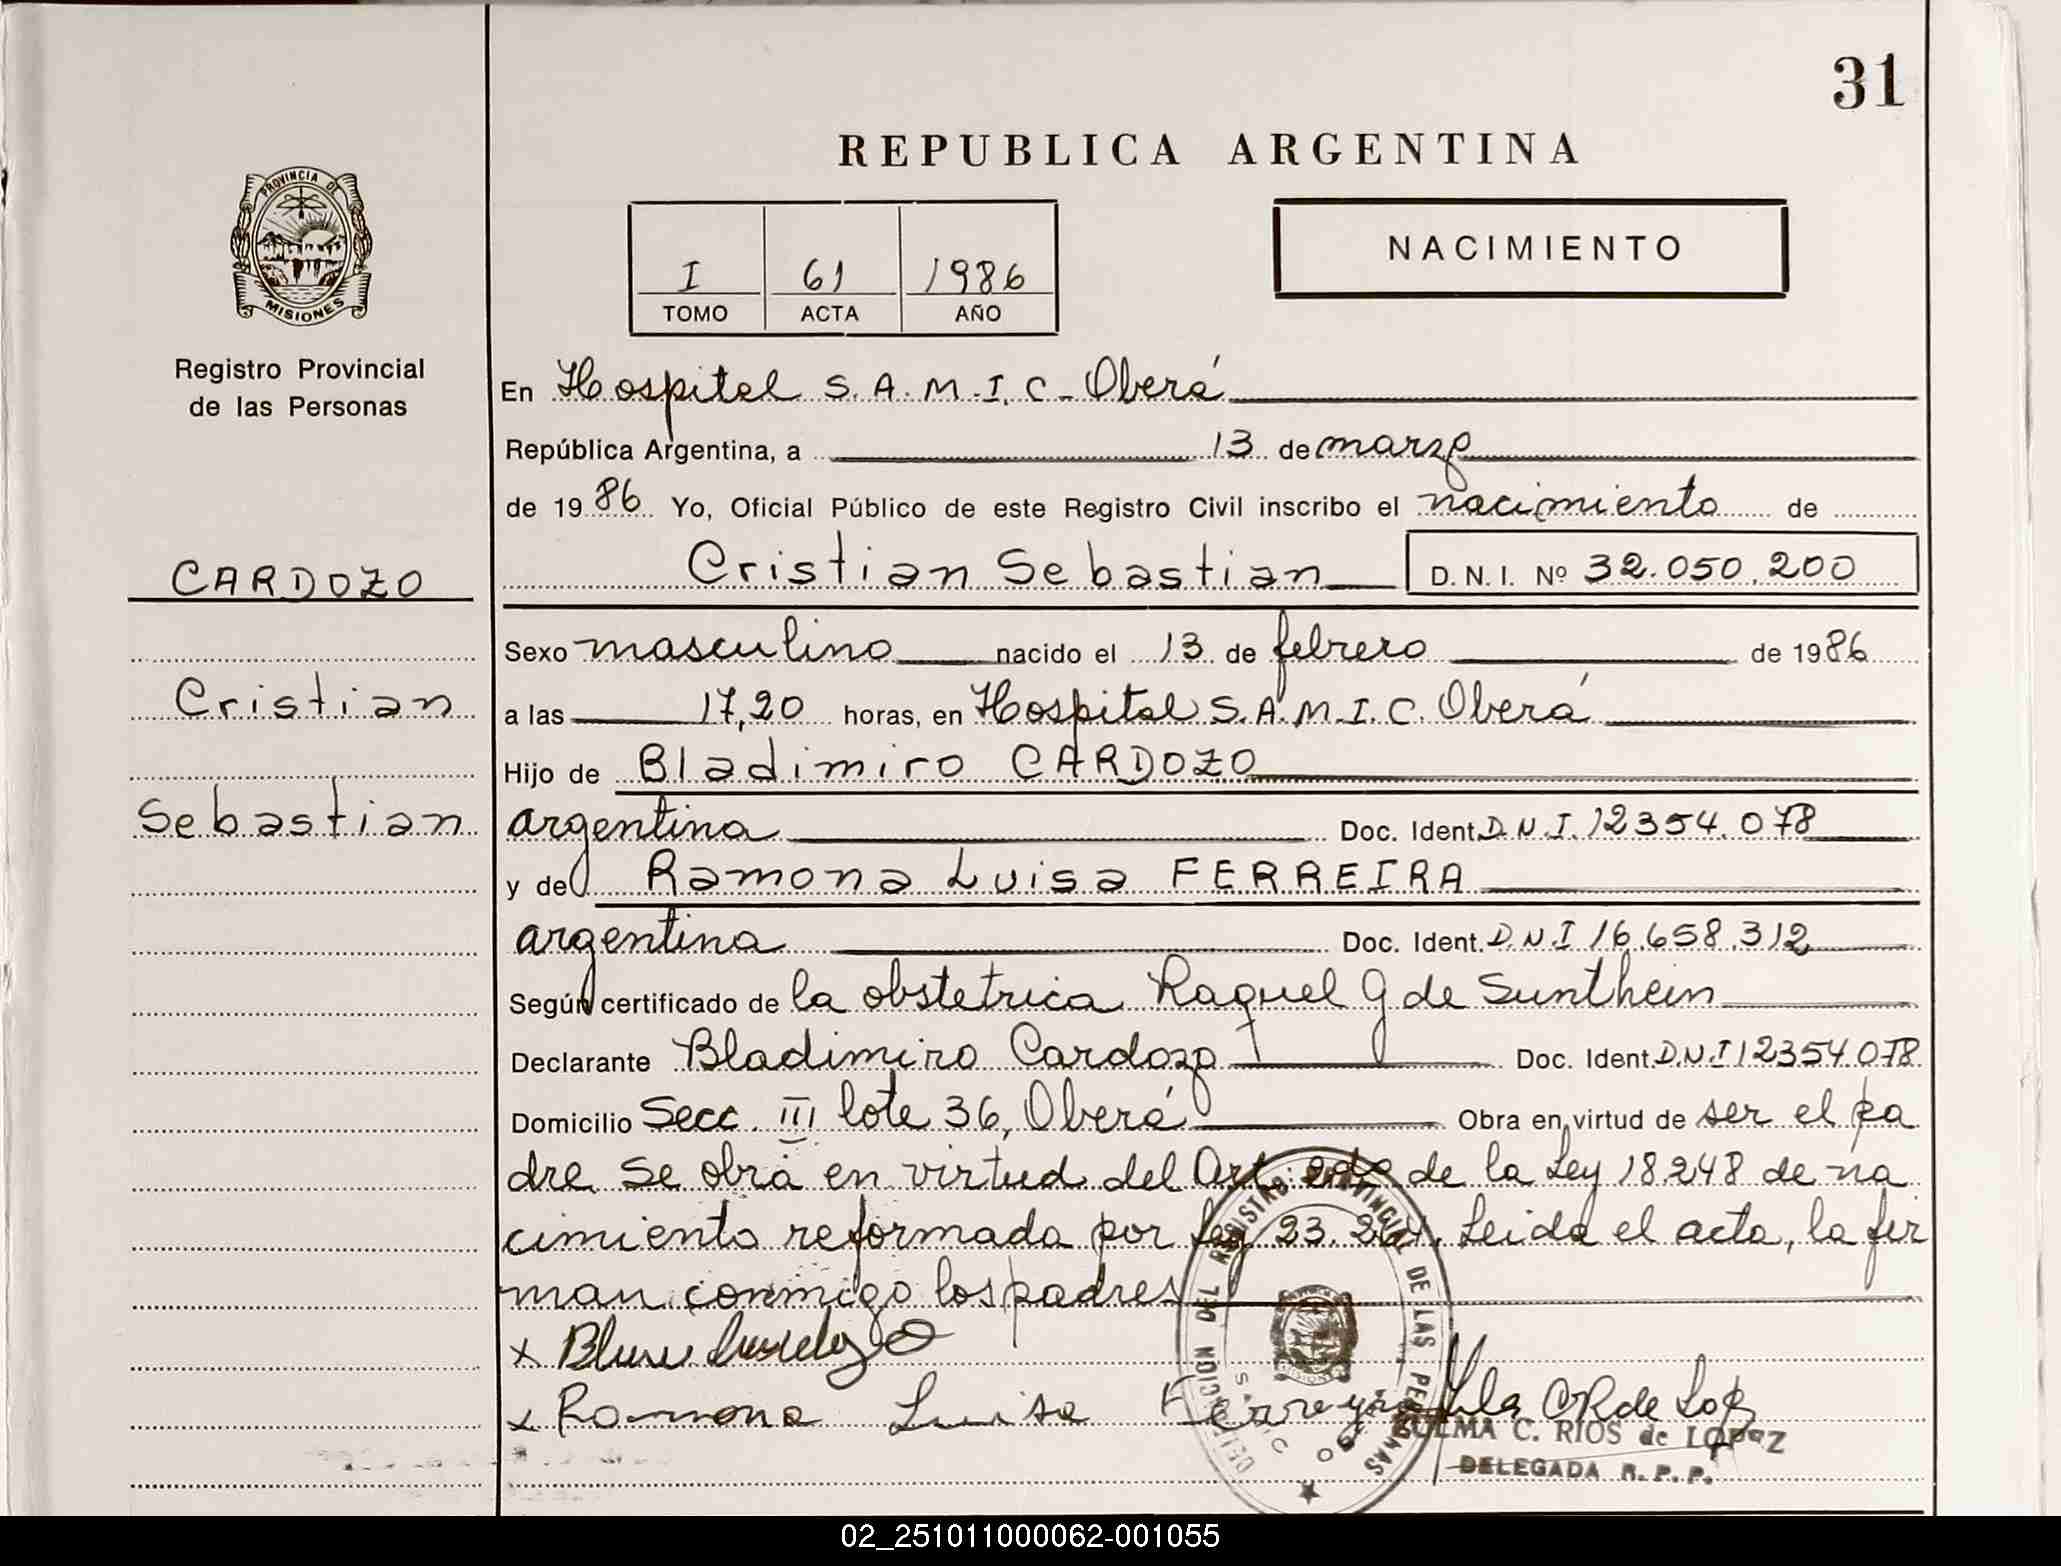 31
REPUBLICA ARGENTINA
PROVINCIA DE
MISIONES
I 61 1986
TOMO ACTA AÑO
NACIMIENTO
Registro Provincial
de las Personas
CARDOZO
Cristian
Sebastian
En Hospital S.A.M.I.C - Oberá
República Argentina, a 13 de marzo
de 1986 Yo, Oficial Público de este Registro Civil inscribo el nacimiento de
Cristian Sebastian D.N.I. Nº 32.050.200
Sexo masculino nacido el 13 de febrero de 1986
a las 17,20 horas, en Hospital S.A.M.I.C. Oberá
Hijo de Bladimiro CARDOZO
argentina Doc. Ident. D.N.I. 12354.078
y de Ramona Luisa FERREIRA
argentina Doc. Ident. D.N.I 16.658.312
Según certificado de la obstetrica Raquel G de Sunthein
Declarante Bladimiro Cardozo Doc. Ident. D.N.I 12354.078
Domicilio Secc. III lote 36, Oberá Obra en virtud de ser el pa
dre. Se obra en virtud del Art. de la Ley 18248 de na
cimiento reformada por Ley 23. Leida el acta, la fir
man conmigo los padres
x
x Ramona Luisa Ferreyra
REGISTRO PROVINCIAL DE LAS PERSONAS
ZULMA C. RIOS de LOPEZ
DELEGADA R.P.P.
02_251011000062-001055